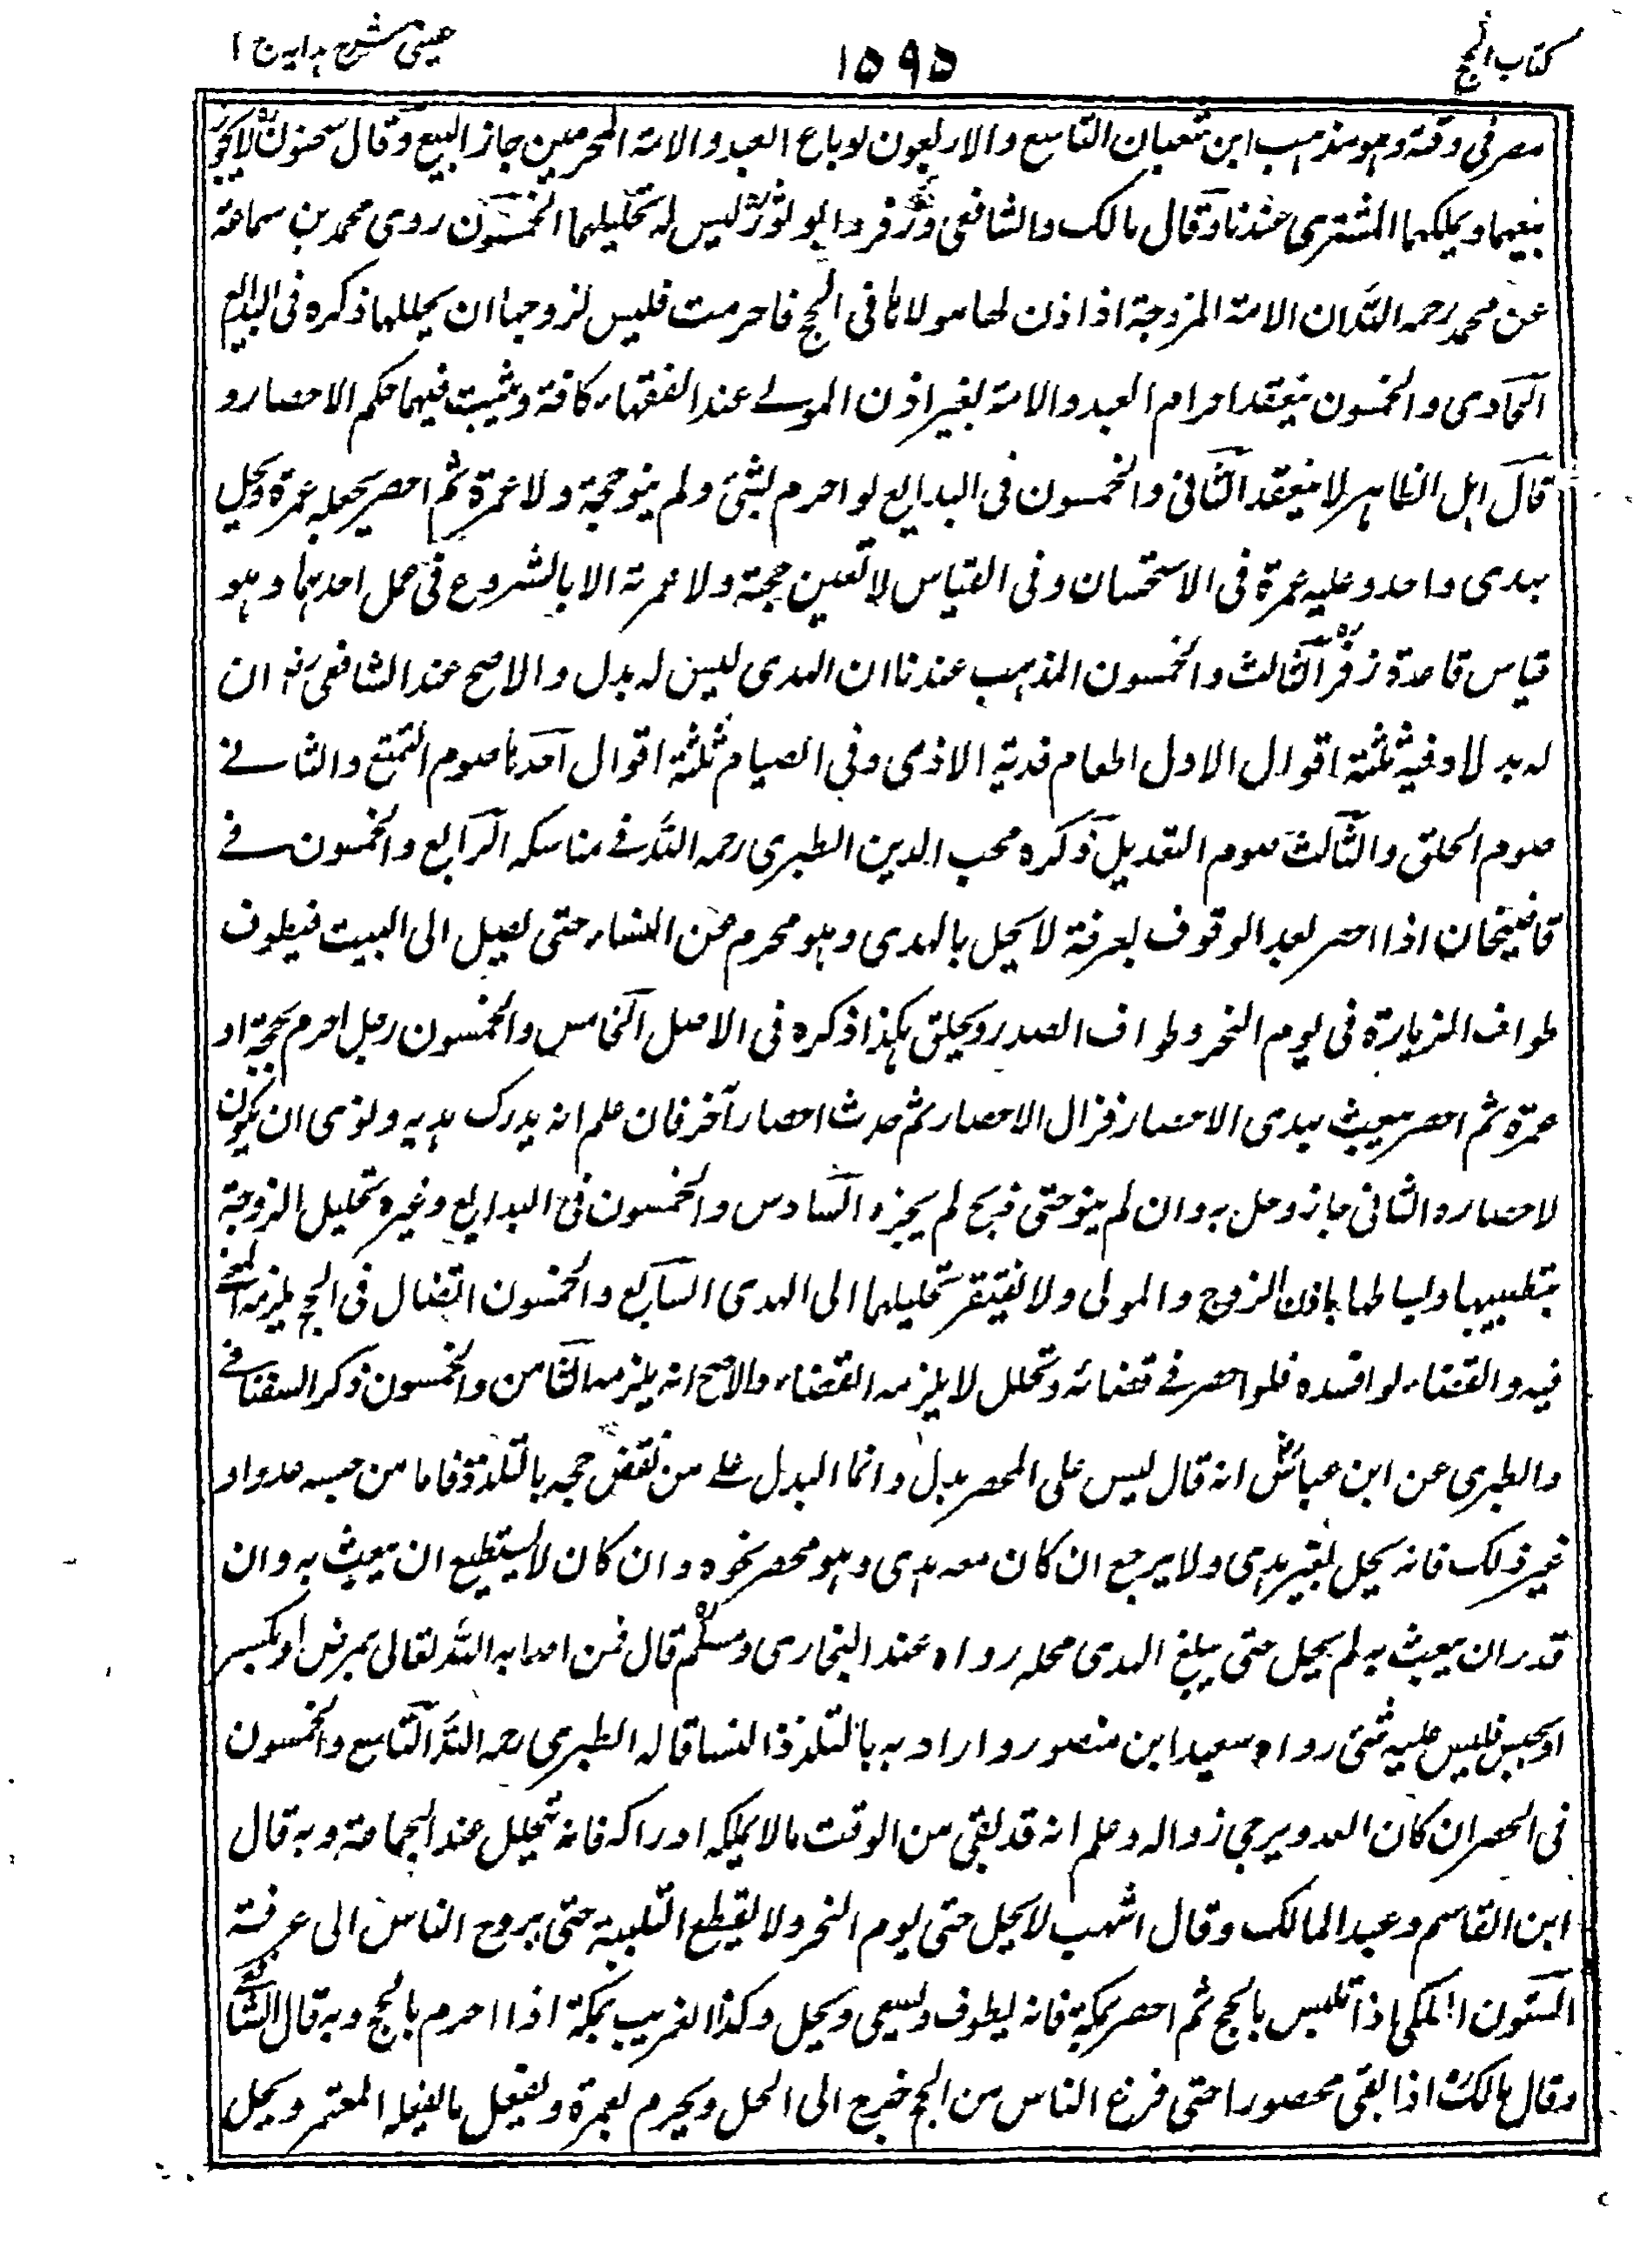 کتاب الحج
۱۵۹۵
عینی شرح ہدایہ ج ۱
مصر فی وقتہ وہو مذہب ابن شعبان التاسع والاربعون لو باع العبد والامۃ المحرمین جاز البیع وقال سحنون لایجوز
بیعہما ویملکہما المشتری عندنا وقال مالک والشافعی وزفر وابو ثور لیس لہ تحلیلہما الخمسون روی محمد بن سماعۃ
عن محمد رحمہ اللہ ان الامۃ المزوجۃ اذا اذن لہا مولاہا فی الحج فاحرمت فلیس لزوجہا ان یحللہا ذکرہ فی البدایع
الحادی والخمسون ینعقد احرام العبد والامۃ بغیر اذن المولے عند الفقہاء کافۃ ویثبت فیہما حکم الاحصار و
قال اہل الظاہر لا ینعقد الثانی والخمسون فی البدایع لو احرم بشئ ولم ینو حجۃ ولا عمرۃ ثم احصر یجعلہ عمرۃ ویحل
بہدی واحد وعلیہ عمرۃ فی الاستحسان وفی القیاس لا تتعین حجۃ ولا عمرتہ الا بالشروع فی عمل احدہما وہو
قیاس قاعدۃ زفرؒ الثالث والخمسون المذہب عندنا ان الہدی لیس لہ بدل والاصح عند الشافعی رح ان
لہ بدلا وفیہ ثلثۃ اقوال الاول اطعام فدیۃ الاذی وفی الصیام ثلثۃ اقوال احدہا صوم التمتع والثانے
صوم الحلق والثالث صوم التعدیل ذکرہ محب الدین الطبری رحمہ اللہ فے مناسکہ الرابع والخمسون فے
قاضیخان اذا احصر بعد الوقوف بعرفۃ لا یحل بالہدی وہو محرم من النساء حتی یصل الی البیت فیطوف
طواف الزیارۃ فی یوم النحر وطواف الصدر ویحلق ہکذا ذکرہ فی الاصل الخامس والخمسون رجل احرم بحجۃ او
عمرۃ ثم احصر فبعث بہدی الاحصار فزال الاحصار ثم حدث احصار آخر فان علم انہ یدرک ہدیہ ونوی ان یکون
لاحصارہ الثانی جاز وحل بہ وان لم ینو حتی ذبح لم یجزہ السادس والخمسون فی البدایع وغیرہ تحلیل الزوجۃ
بتطییبہا ولباسہا باذن الزوج والمولی ولا یفتقر تحلیلہما الی الہدی السابع والخمسون القتال فی الحج یلزمہ المضے
فیہ والقضاء لو افسدہ فلو احصر فے قضائہ وتحلل لا یلزمہ القضاء والاصح انہ یلزمہ الثامن والخمسون ذکر السغناقے
والطبری عن ابن عباسؓ انہ قال لیس علی المحصر بدل وانما البدل علے من نقض حجہ بالتلذذ فاما من حبسہ عدو او
غیر ذلک فانہ یحل بغیر ہدی ولا یرجع ان کان معہ ہدی وہو محصر نحرہ وان کان لا یستطیع ان یبعث بہ وان
قدر ان یبعث بہ لم یحل حتی یبلغ الہدی محلہ رواہ عند البخاری ومسلمؒ قال فمن اصابہ اللہ تعالی بمرض او بکسر
او بحبس فلیس علیہ شئ رواہ سعید ابن منصور واراد بہ بالتلذذ النسا قالہ الطبری رحمہ اللہ التاسع والخمسون
فی الحصر ان کان العدو یرجی زوالہ وعلم انہ قد بقی من الوقت مالا یمکنہ ادراکہ فانہ یتحلل عند الجماعۃ وبہ قال
ابن القاسم وعبد المالک وقال اشہب لا یحل حتی یوم النحر ولا یقطع التلبیۃ حتی یروح الناس الی عرفۃ
الستون المکی اذا تلبس بالحج ثم احصر بمکۃ فانہ یطوف ویسعی ویحل وکذا الغریب بمکۃ اذا احرم بالحج وبہ قال الشافعی
وقال مالکؒ اذا بقی محصورا حتی فرغ الناس من الحج خرج الی الحل ویحرم بعمرۃ ویفعل ما یفعلہ المعتمر ویحل